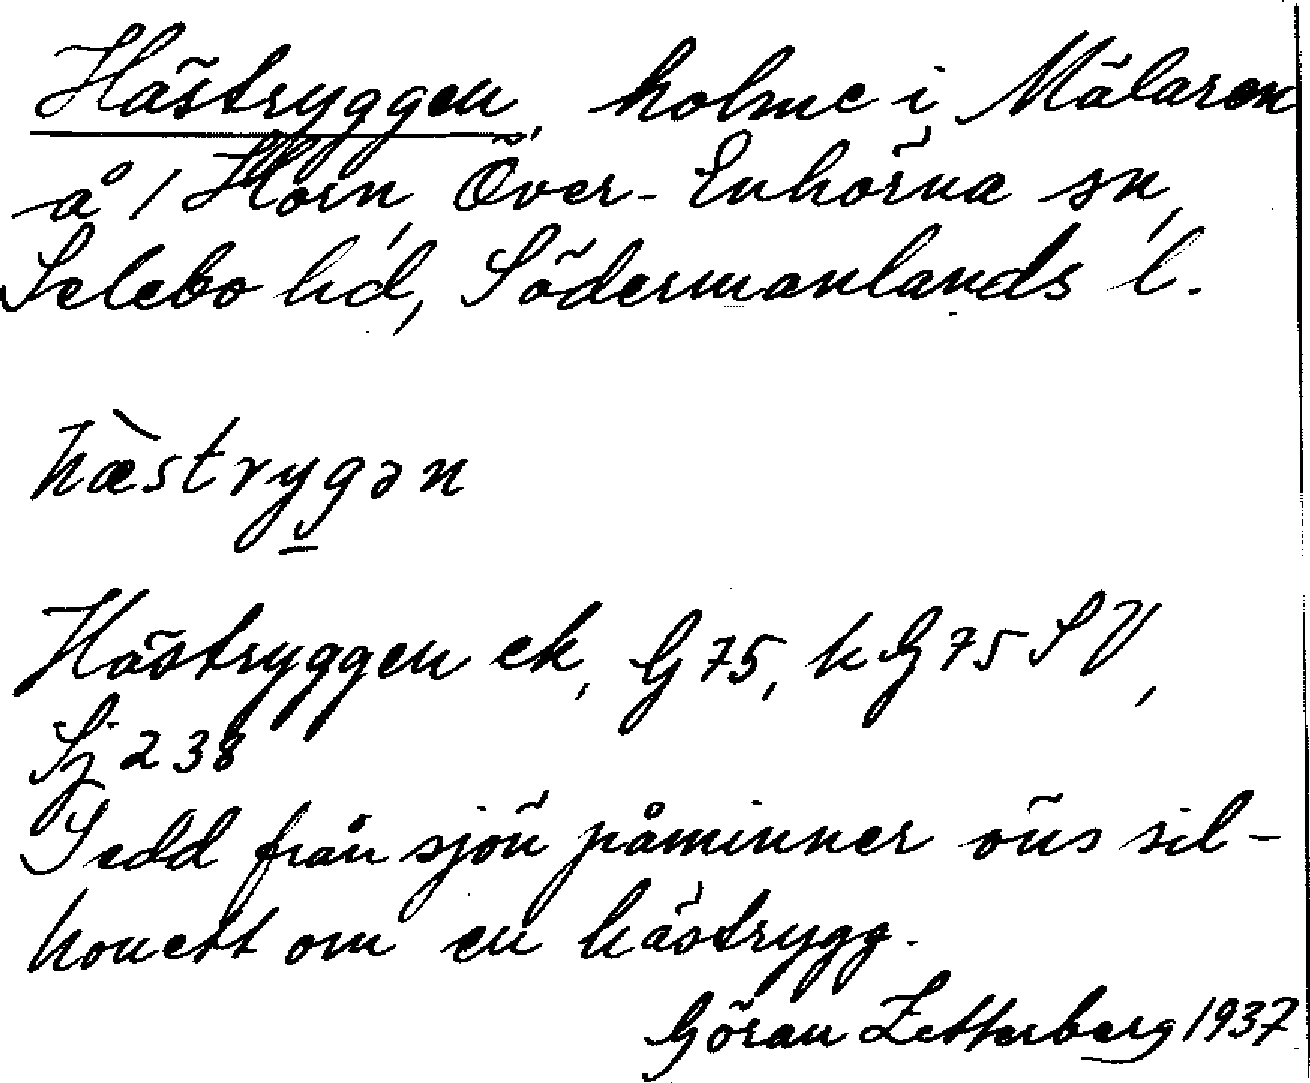 Hästryggen, holme i Mälaren
å / Horn, Över-Enhörna sn,
Selebo hd, Södermanlands l.
hæ̀strygən
Hästryggen ek, G 75, h G 75 SV,
Sj 238
Sedd från sjön påminner öns sil-
houett om en hästrygg.
Göran Zetterberg 1937